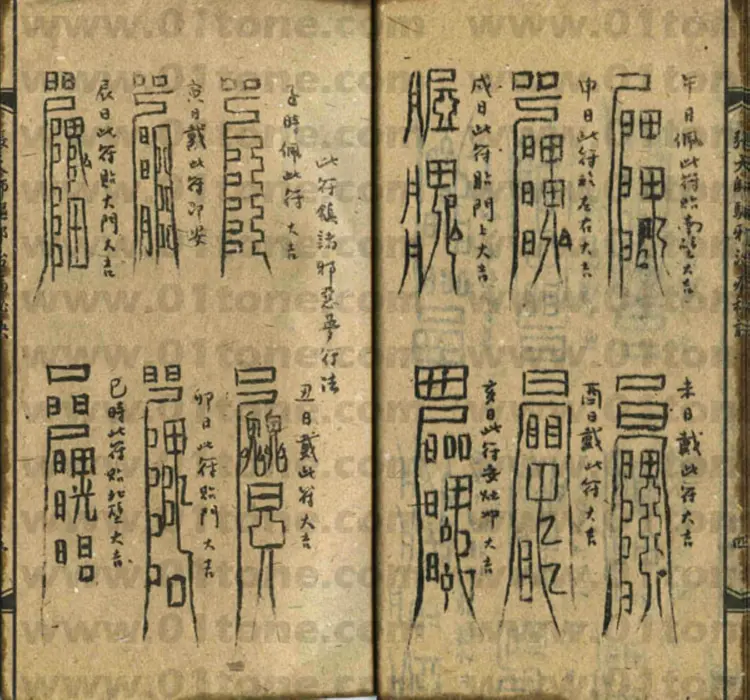 張天師驅邪
四
午日佩此符貼南壁大吉
未日戴此符大吉
申日此符於左右大吉
酉日戴此符大吉
戌日此符貼門上大吉
亥日此符安灶即大吉
此符鎮諸邪惡夢行法
子時佩此符大吉
丑日戴此符大吉
寅日戴此符即安
卯日此符貼門大吉
辰日此符貼大門大吉
巳時此符貼北壁大吉
www.01tone.com